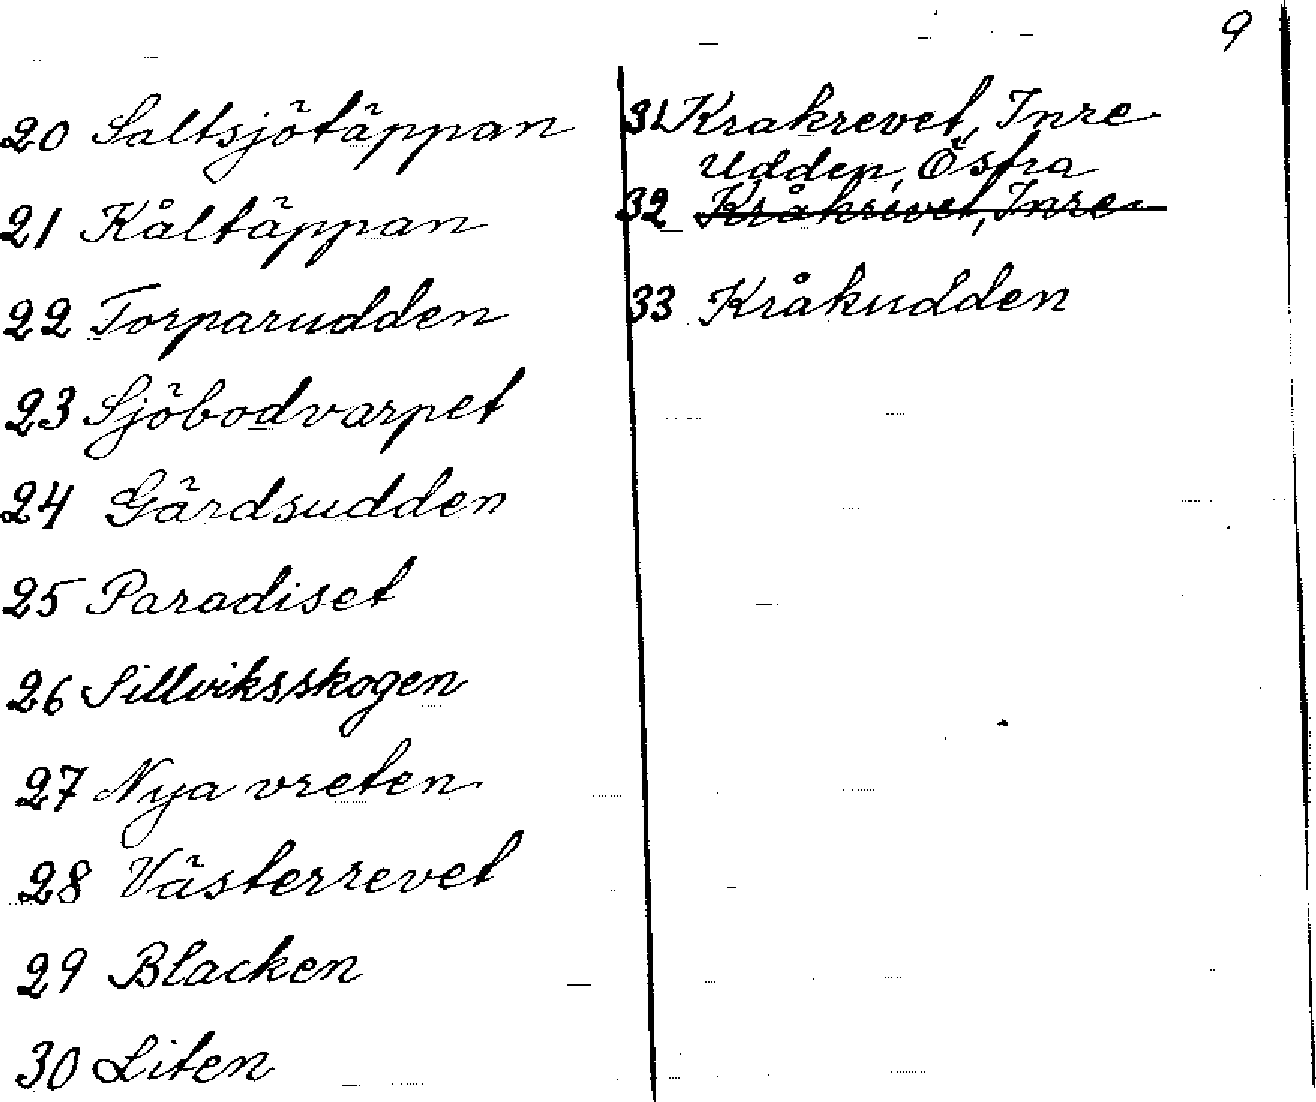 9
20 Saltsjötäppan
21 Kåltäppan
22 Torparudden
23 Sjöbodvarpet
24 Gärdsudden
25 Paradiset
26 Sillviksskogen
27 Nya vreten
28 Västerrevet
29 Blacken
30 Liten
31 Krakrevet, Inre
Udden, Östra
32 Kråkrevet, Inre
33 Kråkudden